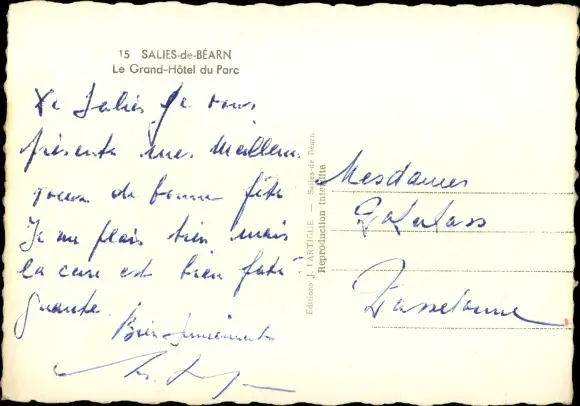 15 SALIES-de-BÉARN
Le Grand-Hôtel du Parc
De Salies Je vous
présente mes meilleurs
voeux de bonne fête
Je me plais bien mais
la cure est bien fati-
guante.
Bien
Editions J. LARTIGUE — Salies-de Béarn
Reproduction Interdite
Mesdames